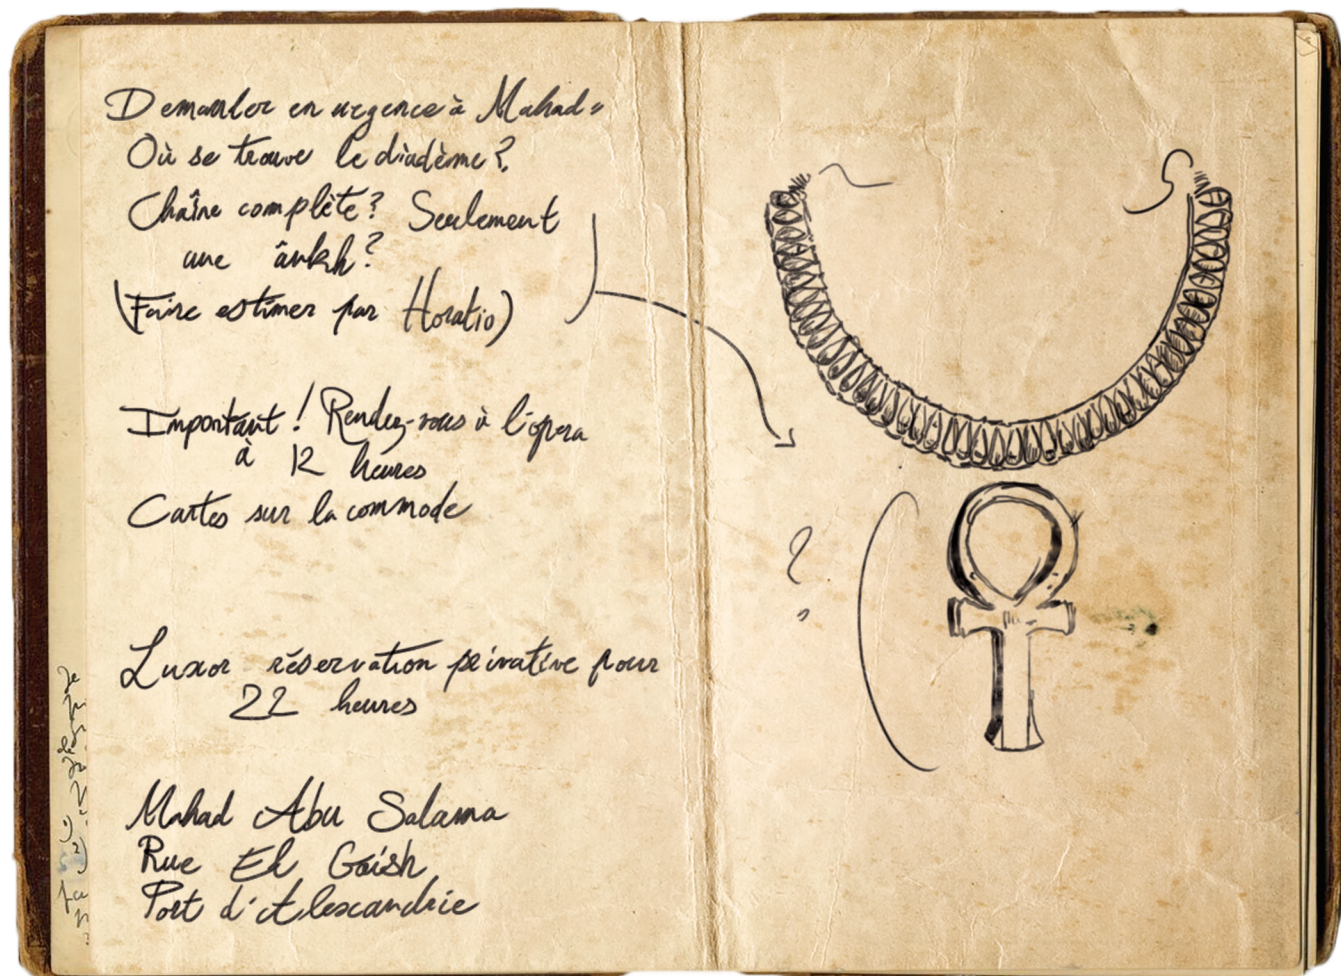 Demander en urgence à Mahad =
Où se trouve le diadème ?
Chaîne complète ? Seulement
une ânkh ?
(Faire estimer par Horatio)
Important ! Rendez-vous à l'opera
à 12 heures
Cartes sur la commode
Luxor réservation privative pour
22 heures
Mahad Abu Salama
Rue El Gaish
Port d'Alexandrie
?